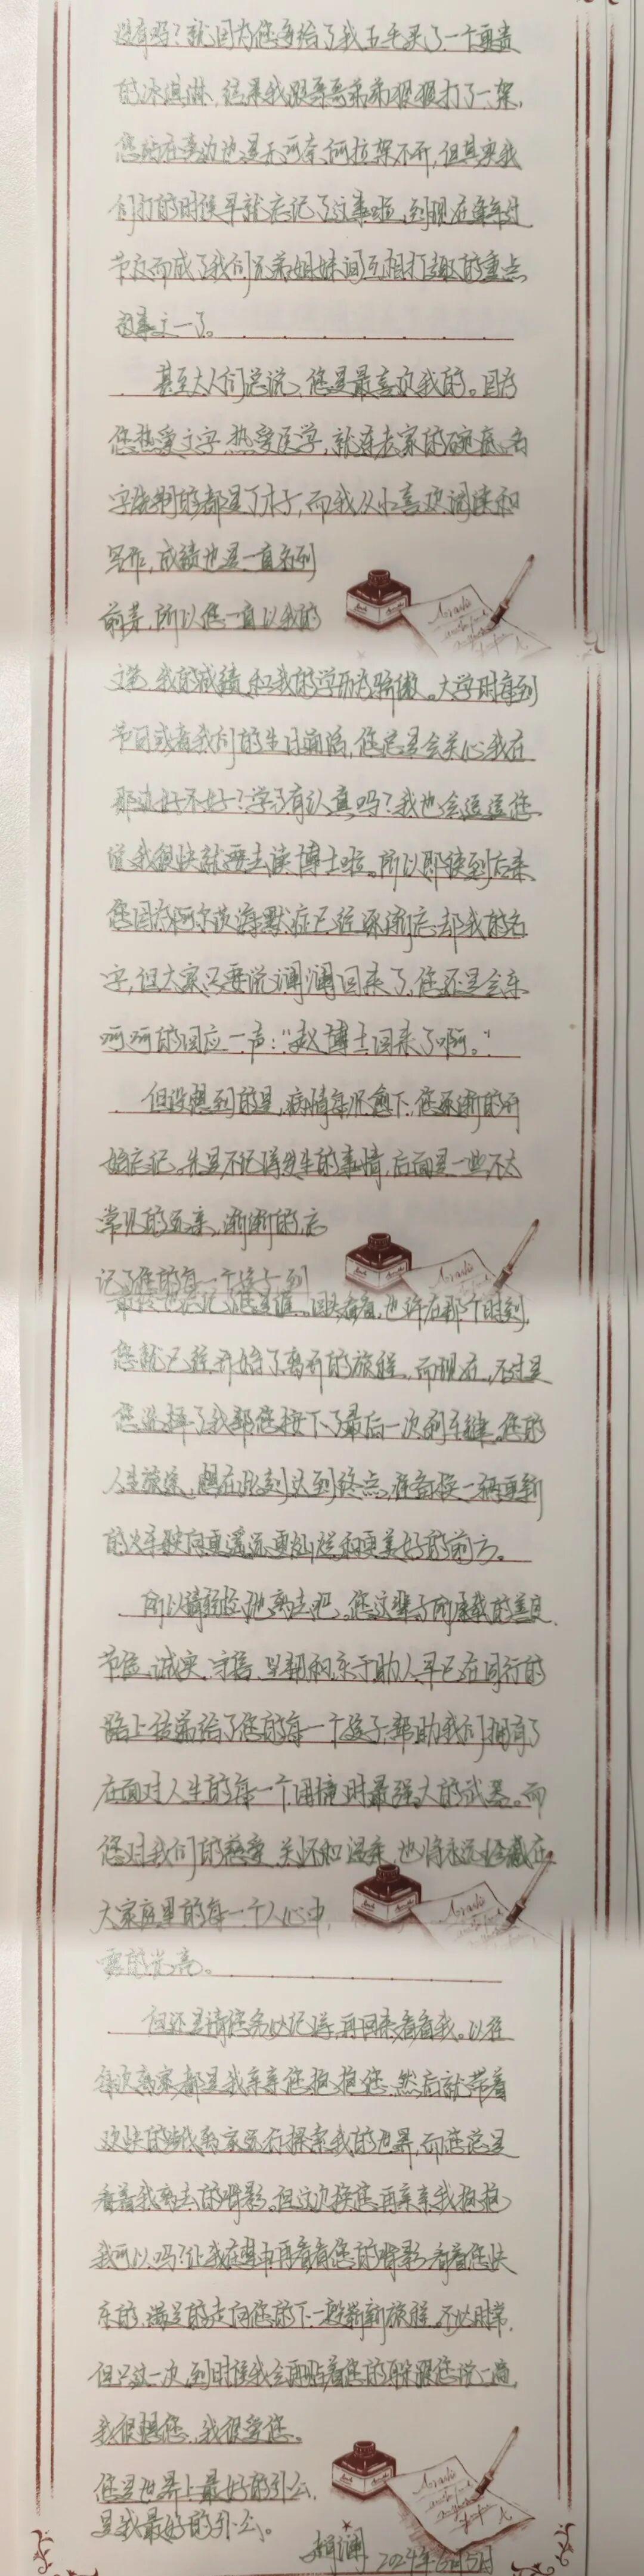 没有吗？就因为您多给了我五毛买了一个更贵
的冰淇淋，结果我跟哥哥弟弟狠狠打了一架，
您站在旁边也是无可奈何拉架不开，但其实我
们打的时候早就忘记了这事啦，到现在逢年过
节反而成了我们兄弟姐妹间互相打趣的重点
故事之一了。
甚至大人们总说，您是最喜欢我的。因为
您热爱文字，热爱医学，就连老家的碗底，名
字先刻的都是丁才子，而我从小喜欢阅读和
写作，成绩也是一直名列
前茅，所以您一直以我的
文笔，我的成绩和我的学历为骄傲。大学时每到
节日或者我们的生日通话，您总是会关心我在
那边好不好？学习有认真吗？我也会逗逗您
说我很快就要去读博士啦。所以即使到后来
您因为阿尔茨海默症已经逐渐忘却我的名
字，但大家只要说澜澜回来了，您还是会乐
呵呵的回应一声：“赵博士回来了啊。”
但没想到的是，病情每况愈下，您逐渐的开
始忘记。先是不记得发生的事情，后面是一些不太
常见的远亲，渐渐的，忘
记了您的每一个孩子，到
最终也忘记了您是谁。回头看看，也许在那个时刻，
您就已经开始了离开的旅程，而现在，不过是
您选择了我帮您按下了最后一次刹车键。您的
人生旅途，想在此刻达到终点，准备换一辆更新
的火车驶向更遥远更灿烂和更美好的前方。
所以请轻松地离去吧。您这辈子所承载的善良、
节俭、诚实、守信、坚韧和乐于助人早已在同行的
路上传递给了您的每一个孩子，帮助我们拥有了
在面对人生的每一个困境时最强大的武器。而
您对我们的慈爱、关怀和温柔，也将永远珍藏在
大家庭里的每一个人心中，
光亮。
但还是请您务必记得，再回来看看我。以往
每次离家都是我亲亲您抱抱您，然后就带着
欢快的步伐离家远行探索我的世界，而您总是
看着我离去的背影。但这次换您再亲亲我抱抱
我可以吗？让我在梦中再看看您的背影，看着您快
乐的、满足的走向您的下一段崭新旅程。不必时常，
但只这一次，到时候我会再贴着您的耳朵跟您说一遍，
我很想您，我很爱您。
您是世界上最好的外公，
是我最好的外公。
赵澜 2024年6月5日